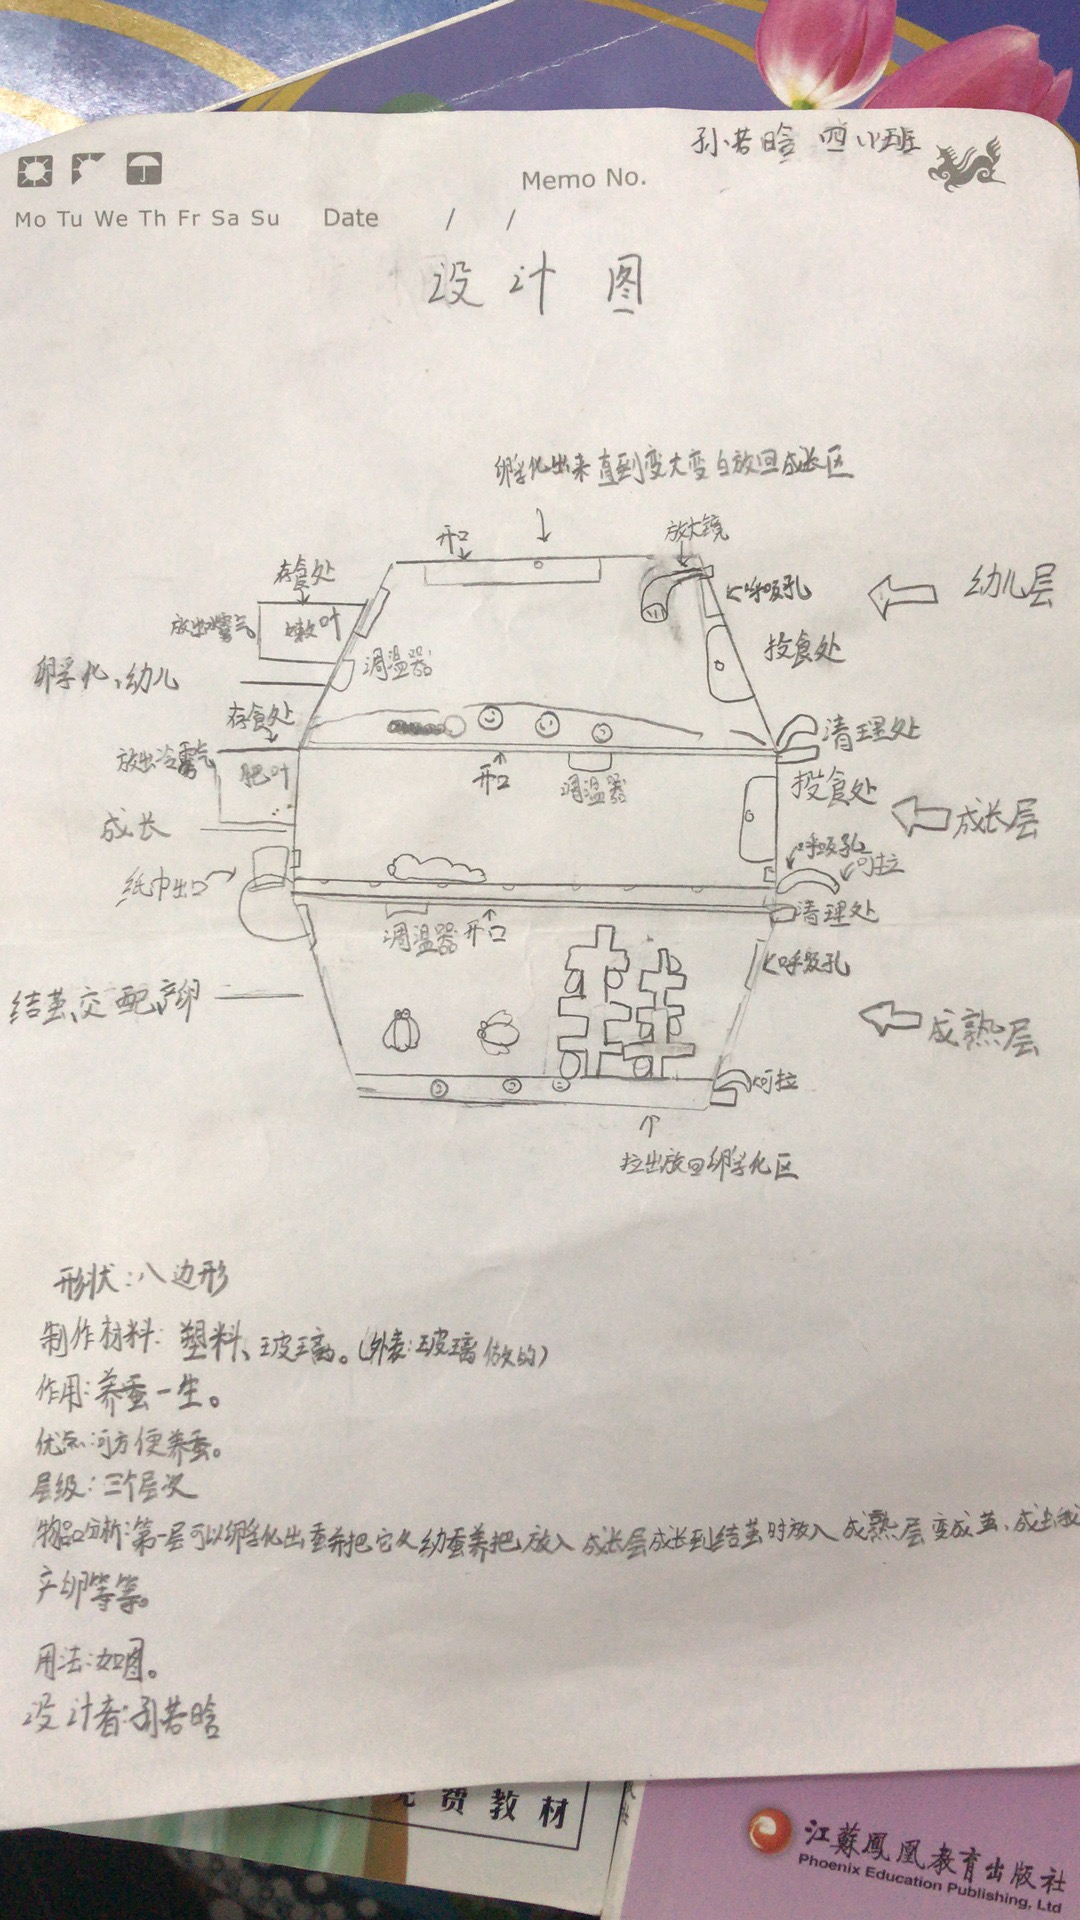 孙若晗 四(1)班
Memo No.
Mo Tu We Th Fr Sa Su Date / /
设计图
孵化出来直到变大变白放回成长区
开口
放大镜
存食处
呼吸孔
幼儿层
放出水雾气
嫩叶
调温器
投食处
孵化、幼儿
存食处
清理处
放出冷雾气
肥叶
开口
调温器
投食处
成长层
成长
呼吸孔
可拉
纸巾出口
调温器
开口
清理处
呼吸孔
结茧、交配、产卵
成熟层
可拉
拉出放回孵化区
形状:八边形
制作材料:塑料、玻璃。(外表:玻璃做的)
作用:养蚕一生。
优点:可方便养蚕。
层级:三个层次
物品分析:第一层可以孵化出蚕并把它从幼蚕养把放入成长层成长到结茧时放入成熟层变成茧、成虫
产卵等等。
用法:如图。
设计者:孙若晗
免费教材
江苏凤凰教育出版社
Phoenix Education Publishing, Ltd